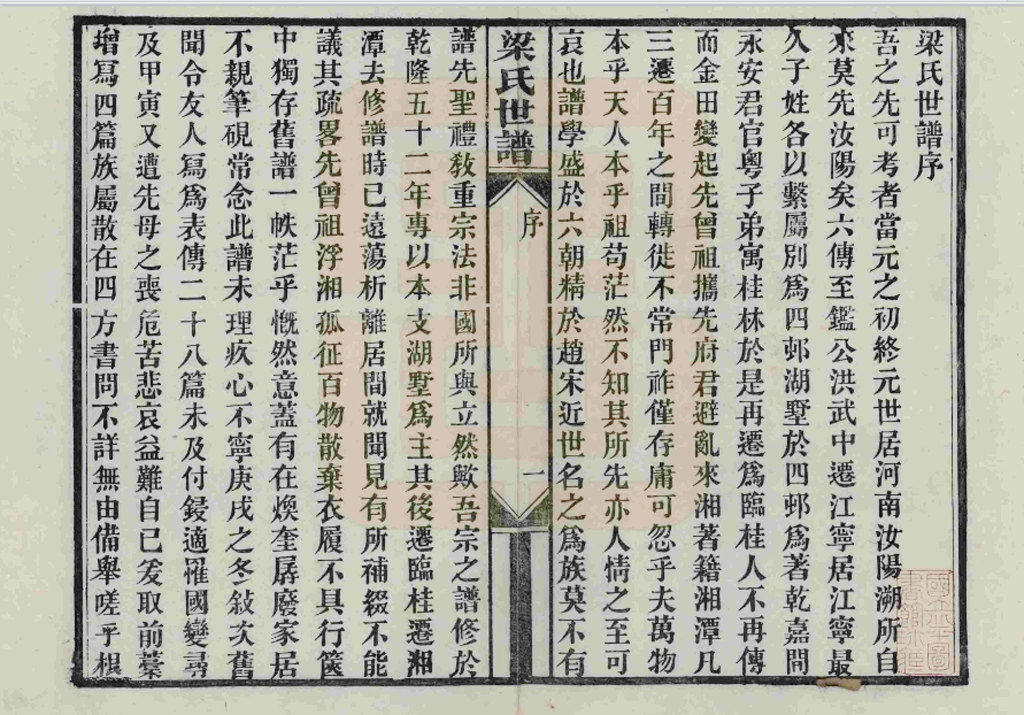 梁氏世譜序
吾之先可考者當元之初終元世居河南汝陽溯所自
來莫先汝陽矣六傳至鑑公洪武中遷江寧居江寧最
久子姓各以繫屬別為四邨湖墅於四邨為著乾嘉間
永安君官粵子弟寓桂林於是再遷為臨桂人不再傳
而金田變起先曾祖攜先府君避亂來湘著籍湘潭凡
三遷百年之間轉徙不常門祚僅存庸可忽乎夫萬物
本乎天人本乎祖苟茫然不知其所先亦人情之至可
哀也譜學盛於六朝精於趙宋近世名之為族莫不有
梁氏世譜
序
一
譜先聖禮敎重宗法非國所與立然歟吾宗之譜修於
乾隆五十二年專以本支湖墅為主其後遷臨桂遷湘
潭去修譜時已遠蕩析離居間就聞見有所補綴不能
議其疏畧先曾祖浮湘孤征百物散棄衣履不具行篋
中獨存舊譜一帙茫乎慨然意蓋有在煥奎孱廢家居
不親筆硯常念此譜未理疚心不寧庚戌之冬敍次舊
聞令友人寫為表傳二十八篇未及付鋟適罹國變尋
及甲寅又遭先母之喪危苦悲哀益難自已爰取前藁
增寫四篇族屬散在四方書問不詳無由備舉嗟乎根